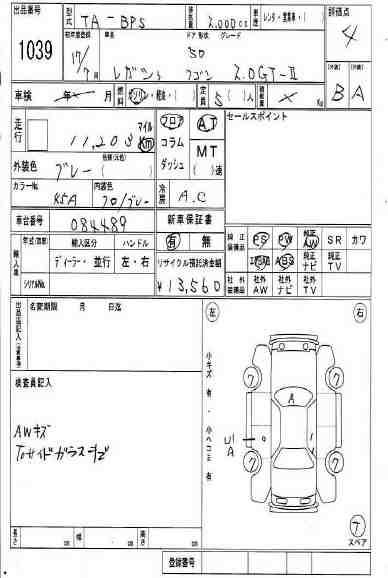 出品番号 1039
型式 TA-BP5
排気量 2.000cc
車歴 レンタ・営業車・( )
評価点 4
初年度登録 17/7
車名 レガシィ ワゴン
ドア形状 5D
グレード 2.0GT-II
(外装) B
(内装) A
車検 年 月
燃料 ガソリン・軽油・( )
定員 5(人)
積載量 × Kg
走行 11,203 マイル km
フロア コラム ダッシュ
AT MT ( )速
セールスポイント
外装色 グレー
(元色)
カラーNo. K5A
内装色 クロ/グレー
冷房 A.C
車台番号 084489
新車保証書 有 無
純正装備品 PS PW 純正AW SR カワ
エアB ABS 純正ナビ 純正TV
社外装備品 社外AW 社外ナビ 社外TV
輸入車 年式(西暦) 輸入区分 ハンドル
ディーラー・並行 左・右
シリアルNo.
リサイクル預託済金額
¥13,560
出品店記入(注意事項)
名変期限 月 日迄
検査員記入
AWキズ
左 右
小キズ有・小ヘコミ有
A
U1
A
ワ ワ ワ ワ
スペア
長さ 幅 高さ
0cm 0cm 0cm
登録番号